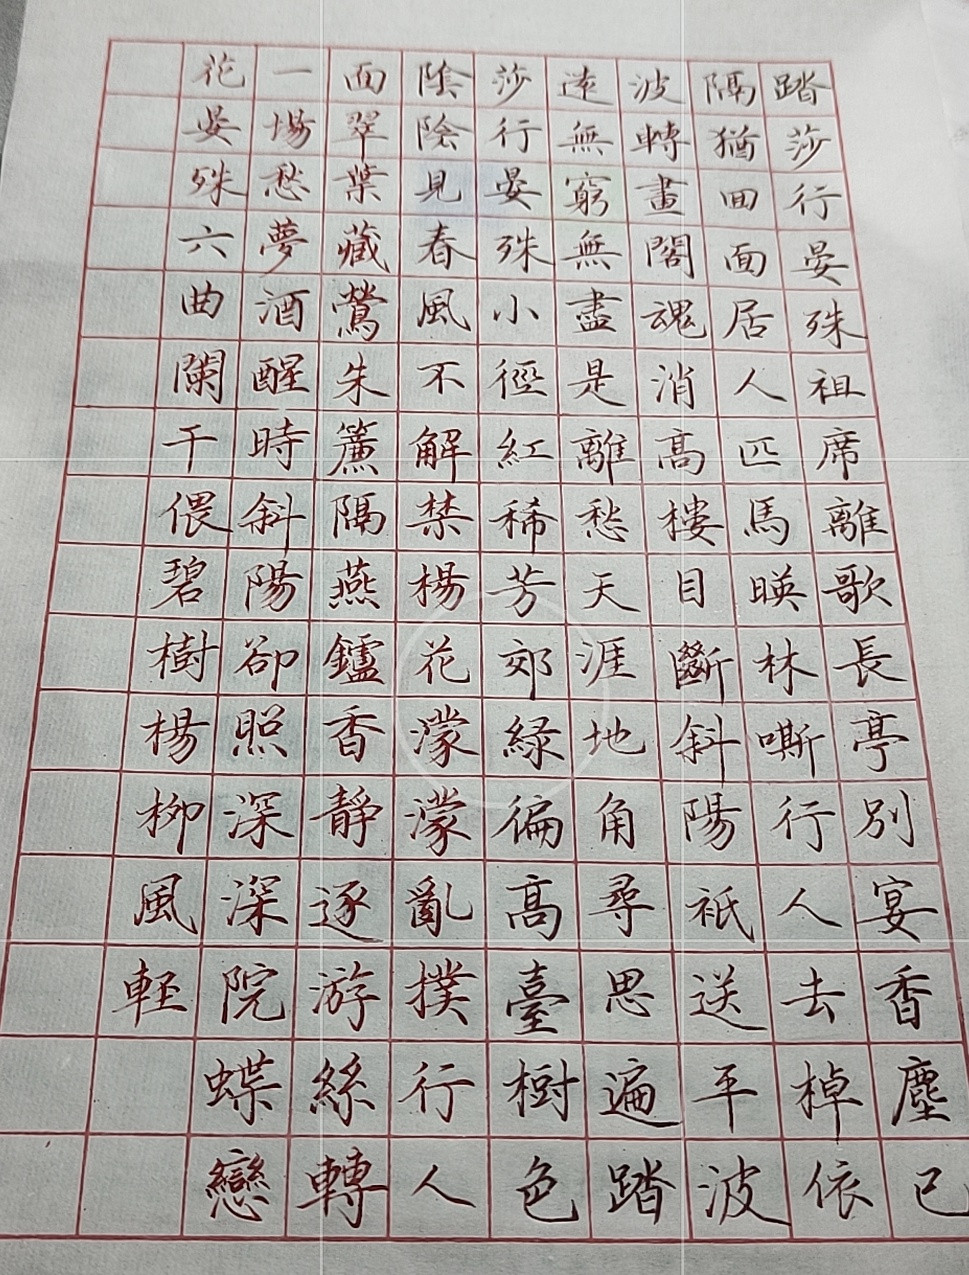 踏莎行晏殊祖席離歌長亭別宴香塵已
隔猶回面居人匹馬暎林嘶行人去棹依
波轉畫閣魂消高樓目斷斜陽衹送平波
遠無窮無盡是離愁天涯地角尋思遍踏
莎行晏殊小徑紅稀芳郊緑徧高臺樹色
陰陰見春風不解禁楊花濛濛亂撲行人
面翠葉藏鶯朱簾隔燕鑪香靜逐游絲轉
一場愁夢酒醒時斜陽卻照深深院蝶戀
花晏殊六曲闌干偎碧樹楊柳風輕